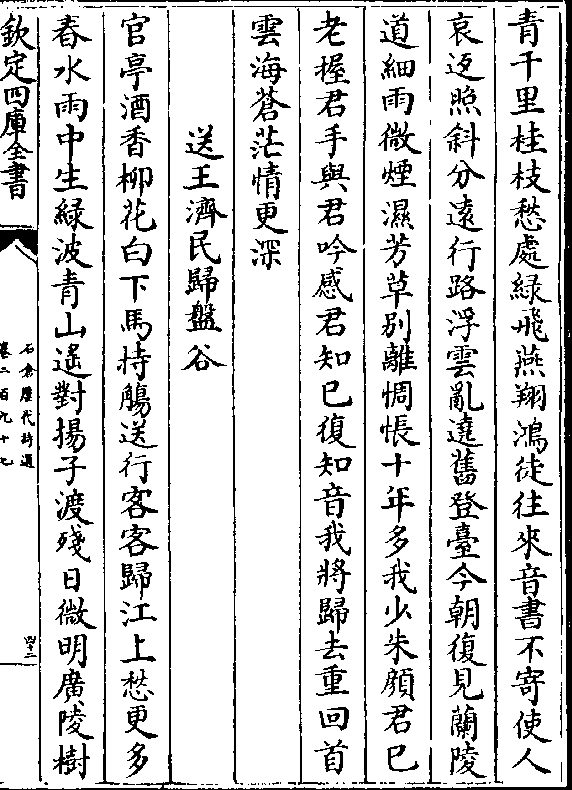 青千里桂枝愁處緑飛燕翔鴻徒往來音書不寄使人
哀返照斜分遠行路浮雲亂遶舊登臺今朝復見蘭陵
道細雨微煙濕芳草别離惆悵十年多我少朱顔君已
老握君手與君吟感君知已復知音我將歸去重回首
雲海蒼茫情更深
送王濟民歸盤谷
官亭酒香栁花白下馬持觴送行客客歸江上愁更多
春水雨中生緑波青山遙對揚子渡殘日微明廣陵樹
欽定四庫全書
石倉歷代詩選
卷二百九十七
四十二